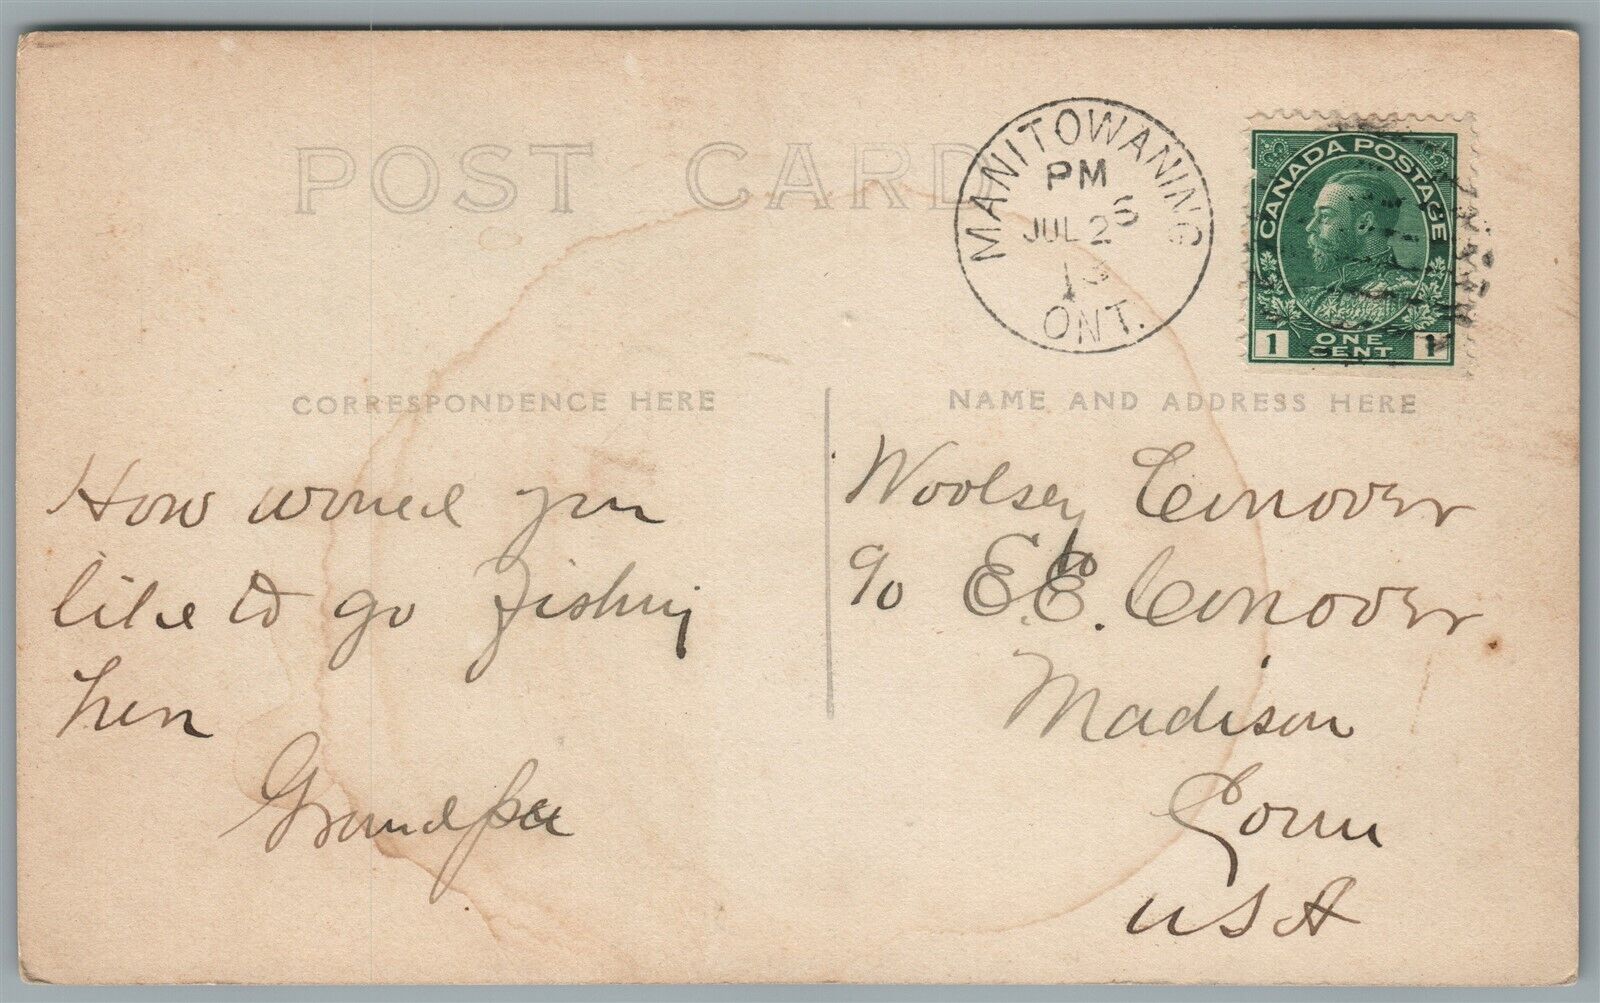 POST CARD
MANITOWANING
PM
JUL 26
ONT.
CANADA POSTAGE
1 ONE CENT 1
CORRESPONDENCE HERE
NAME AND ADDRESS HERE
How would you
like to go fishing
here
Grandpa
Woolsey Conover
c/o E.E. Conover
Madison
Conn
USA